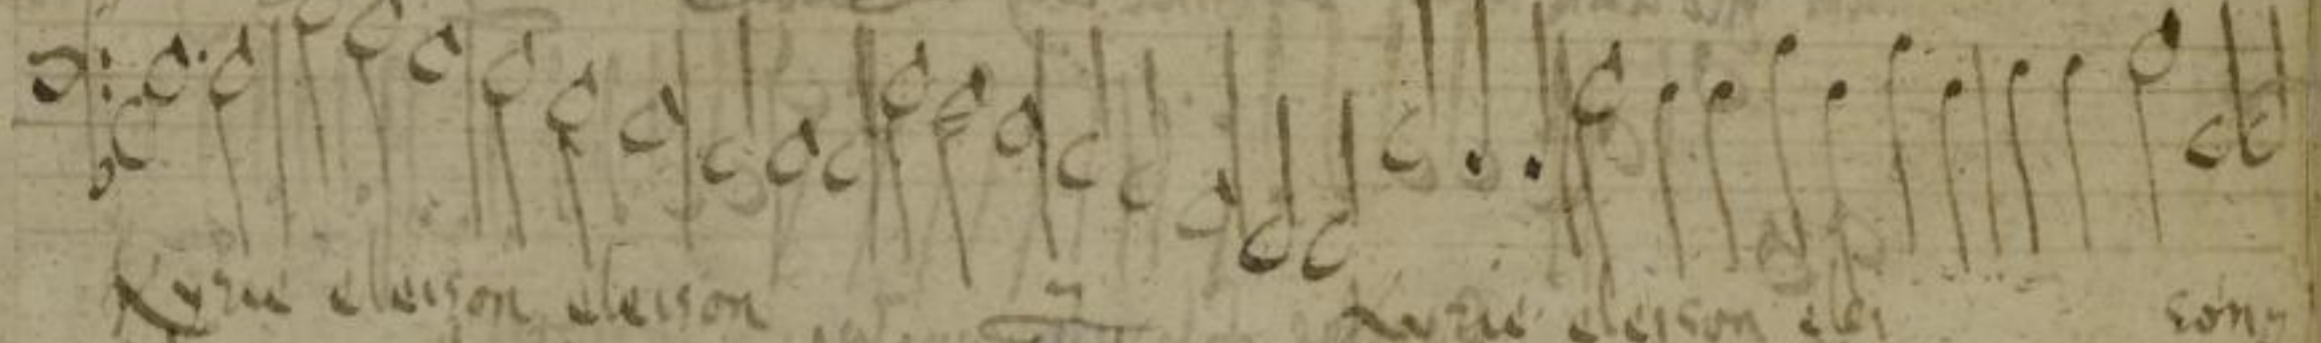 Kyrie eleison eleison Kyrie eleison elei son